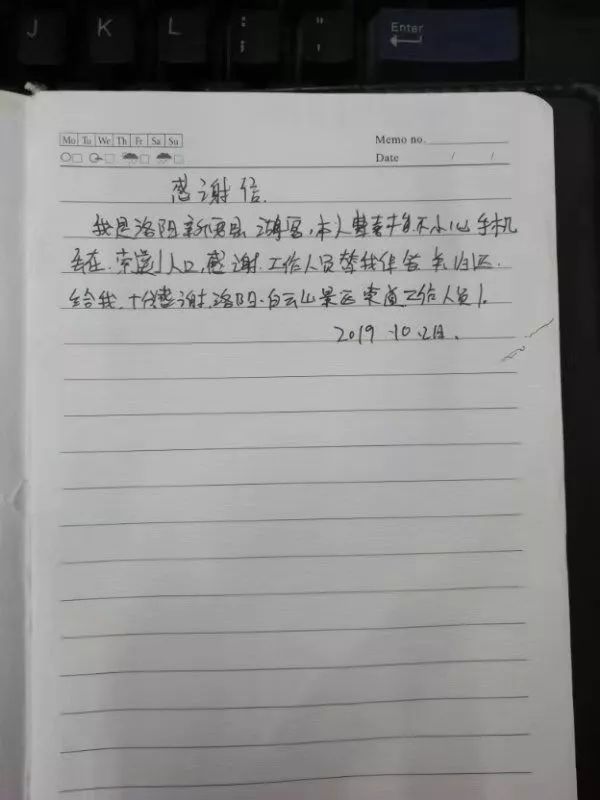 J K L ; : ' " Enter
Mo Tu We Th Fr Sa Su
Memo no.
Date / /
感谢信.
我是洛阳新安县 游客,本人 不小心手机
丢在.索道入口,感谢.工作人员替我保管 归还.
给我,十分感谢.洛阳.白云山景区索道工作人员!.
2019.10.2日.